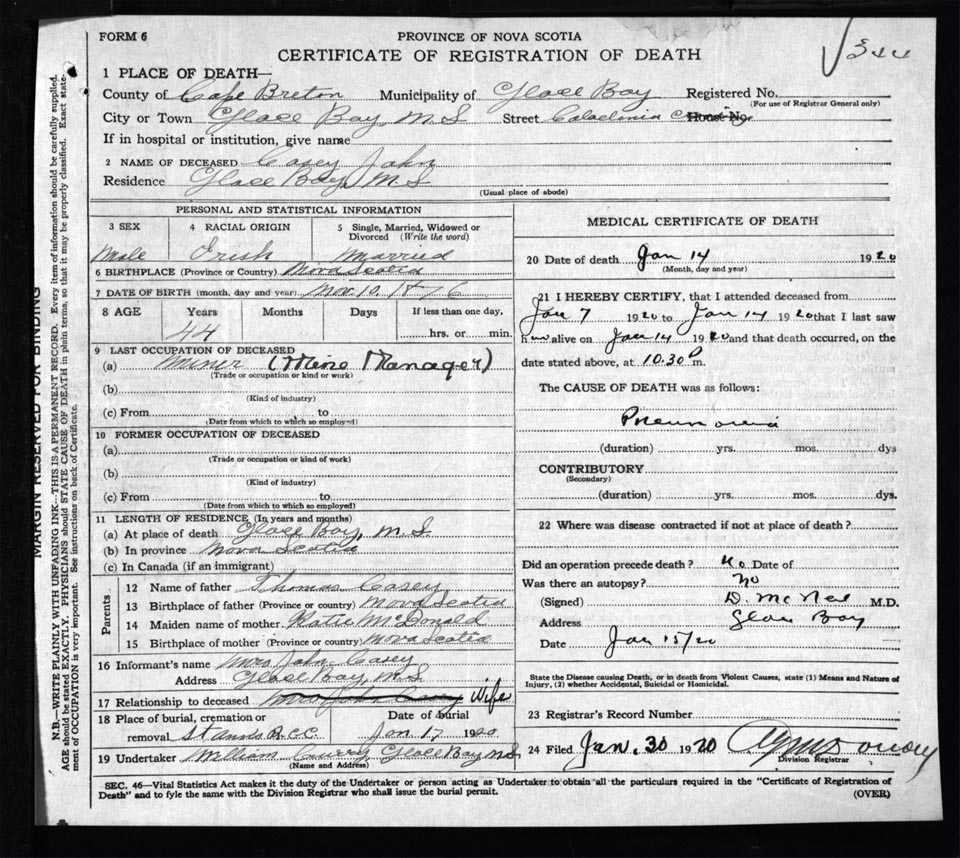 FORM 6
PROVINCE OF NOVA SCOTIA
CERTIFICATE OF REGISTRATION OF DEATH
1 PLACE OF DEATH—
County of Cape Breton Municipality of Glace Bay Registered No.
(For use of Registrar General only)
City or Town Glace Bay, N.S. Street House No.
If in hospital or institution, give name
2 NAME OF DECEASED Casey John
Residence Glace Bay, N.S.
(Usual place of abode)
PERSONAL AND STATISTICAL INFORMATION
3 SEX 4 RACIAL ORIGIN 5 Single, Married, Widowed or Divorced (Write the word)
Male Irish Married
6 BIRTHPLACE (Province or Country) Nova Scotia
7 DATE OF BIRTH (month, day and year) Nov. 10, 1876
8 AGE Years Months Days If less than one day,
44 hrs. or min.
9 LAST OCCUPATION OF DECEASED
(a) Miner (Mine Manager)
(Trade or occupation or kind of work)
(b)
(Kind of industry)
(c) From to
(Date from which to which so employed)
10 FORMER OCCUPATION OF DECEASED
(a)
(Trade or occupation or kind of work)
(b)
(Kind of industry)
(c) From to
(Date from which to which so employed)
11 LENGTH OF RESIDENCE (In years and months)
(a) At place of death Glace Bay, N.S.
(b) In province Nova Scotia
(c) In Canada (if an immigrant)
Parents
12 Name of father Thomas Casey
13 Birthplace of father (Province or country) Nova Scotia
14 Maiden name of mother Katie McDonald
15 Birthplace of mother (Province or country) Nova Scotia
16 Informant's name Mrs. John Casey
Address Glace Bay, N.S.
17 Relationship to deceased Mrs John Casey Wife
18 Place of burial, cremation or removal St Anns R.C.C. Date of burial Jan 17 1920
19 Undertaker William Curry, Glace Bay N.S.
(Name and Address)
MEDICAL CERTIFICATE OF DEATH
20 Date of death Jan 14 1920
(Month, day and year)
21 I HEREBY CERTIFY, that I attended deceased from
Jan 7 1920 to Jan 14 1920 that I last saw
him alive on Jan 14 1920 and that death occurred, on the
date stated above, at 10.30 P m.
The CAUSE OF DEATH was as follows:
Pneumonia
(duration) yrs. mos. dys
CONTRIBUTORY
(Secondary)
(duration) yrs. mos. dys.
22 Where was disease contracted if not at place of death?
Did an operation precede death? No Date of
Was there an autopsy? No
(Signed) D. McNeil M.D.
Address Glace Bay
Date Jan 15/20
State the Disease causing Death, or in death from Violent Causes, state (1) Means and Nature of
Injury, (2) whether Accidental, Suicidal or Homicidal.
23 Registrar's Record Number
24 Filed Jan. 30 1920
Division Registrar
SEC. 46—Vital Statistics Act makes it the duty of the Undertaker or person acting as Undertaker to obtain all the particulars required in the "Certificate of Registration of
Death" and to fyle the same with the Division Registrar who shall issue the burial permit. (OVER)
MARGIN RESERVED FOR BINDING
N.B.—WRITE PLAINLY WITH UNFADING INK—THIS IS A PERMANENT RECORD. Every item of information should be carefully supplied.
AGE should be stated EXACTLY. PHYSICIANS should STATE CAUSE OF DEATH in plain terms, so that it may be properly classified. Exact state-
ment of OCCUPATION is very important. See instructions on back of Certificate.